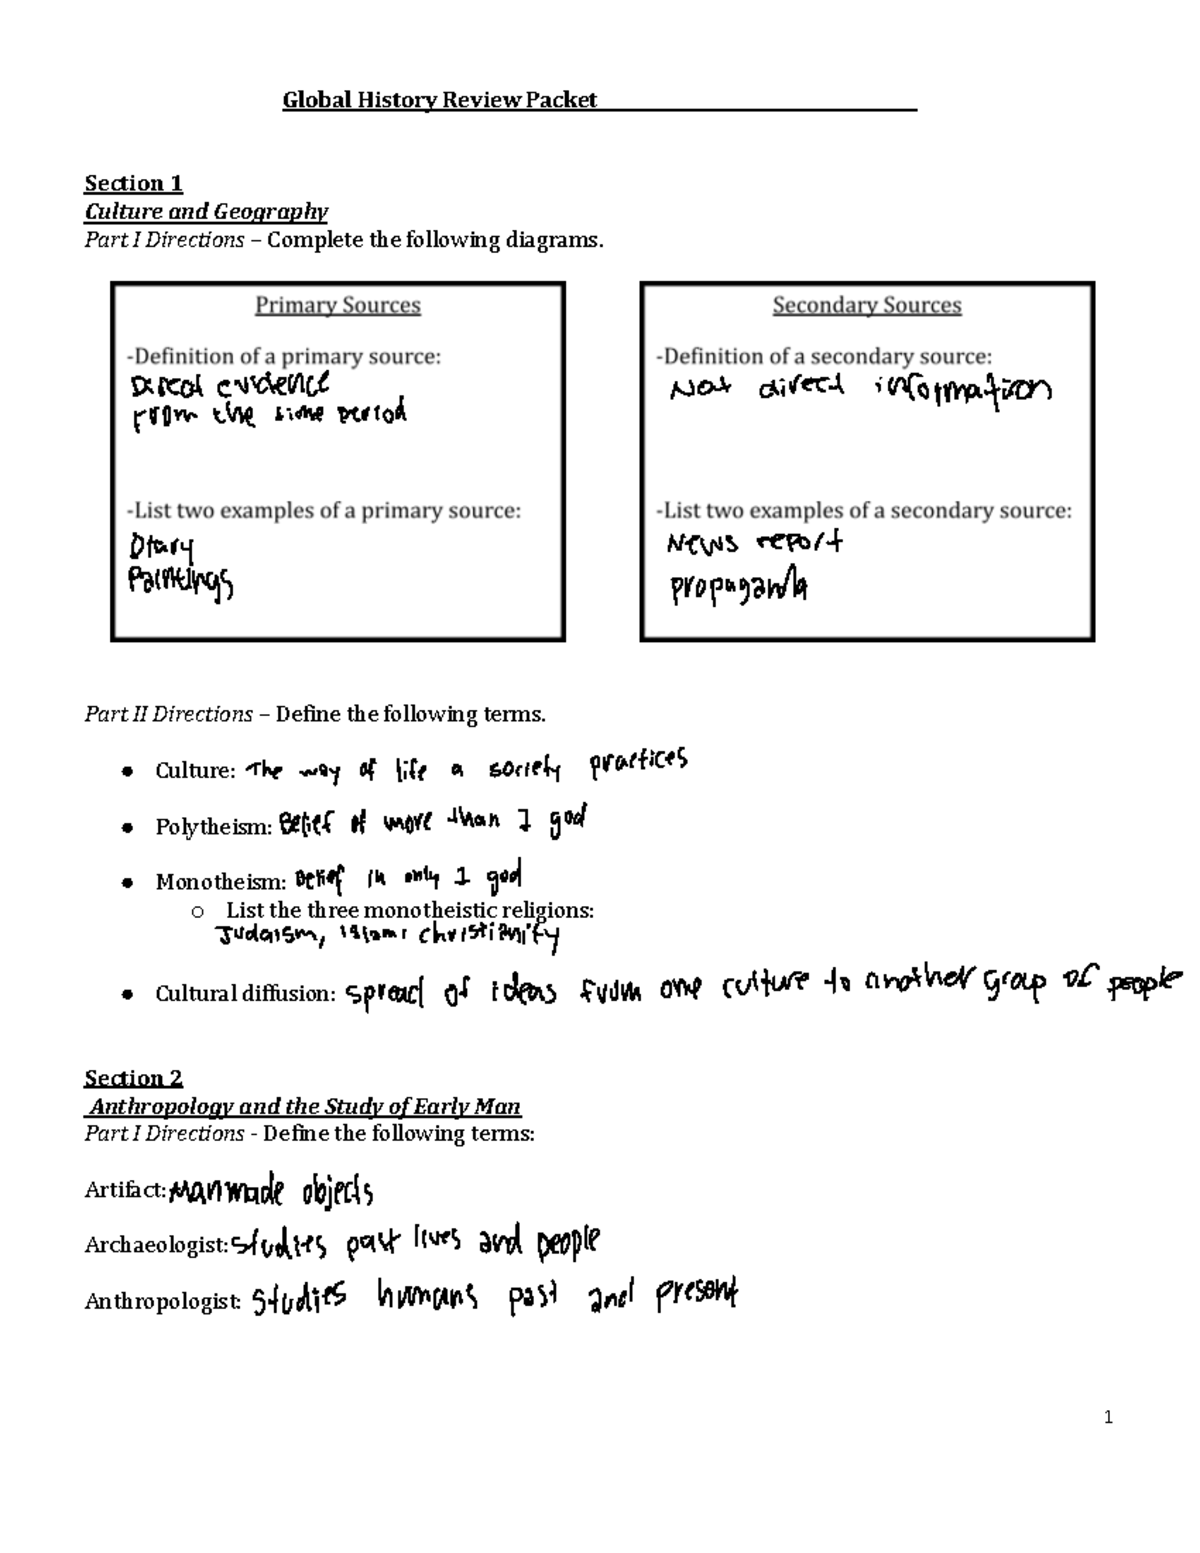 Global History Review Packet
Section 1
Culture and Geography
Part I Directions – Complete the following diagrams.
Primary Sources
-Definition of a primary source:
Direct evidence
From the time period
-List two examples of a primary source:
Diary
Paintings
Secondary Sources
-Definition of a secondary source:
Not direct information
-List two examples of a secondary source:
News report
propaganda
Part II Directions – Define the following terms.
● Culture: The way of life a society practices
● Polytheism: Belief of more than 1 god
● Monotheism: Belief in only 1 god
○ List the three monotheistic religions:
Judaism, Islam, christianity
● Cultural diffusion: spread of ideas from one culture to another group of people
Section 2
Anthropology and the Study of Early Man
Part I Directions - Define the following terms:
Artifact: Manmade objects
Archaeologist: studies past lives and people
Anthropologist: studies humans past and present
1